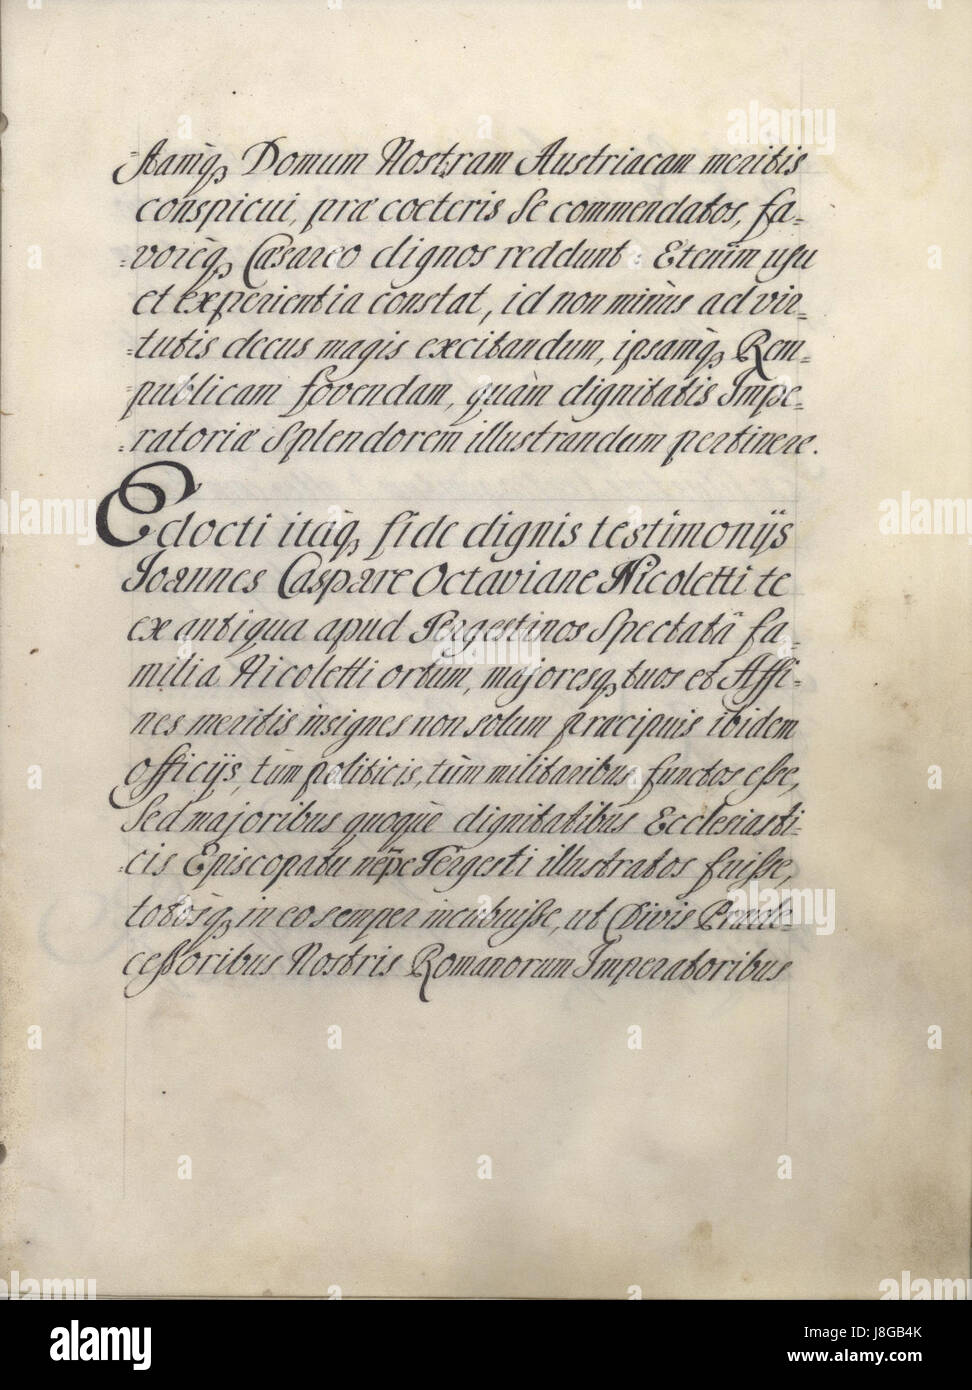 -stamq₃ Domum Nostram Austriacam meritis
conspicui, præ coeteris se commendatos, fa-
-vorèq₃ Cæsareo dignos reddunt: Etenim usu
et experientia constat, id non minùs ad vir-
-tutis decus magis excitandum, ipsamq₃ Rem-
-publicam fovendam, quàm dignitatis Impe-
-ratoriæ Splendorem illustrandum pertinere.
Edocti itaq₃ fide dignis testimonijs
Joannes Caspare Octaviane Nicoletti te
ex antiqua apud Tergestinos Spectatâ fa-
milia Nicoletti ortum, majoresq₃ tuos et Affi-
nes meritis insignes non solum præcipuis ibidem
officijs, tùm politicis, tùm militaribus functos esse,
Sed majoribus quoquè dignitatibus Ecclesiasti-
-cis Episcopatu nempe Tergesti illustratos fuisse,
totosq₃ in eo semper incubuisse, ut Divis Præde-
cessoribus Nostris Romanorum Imperatoribus
alamy
Image ID: J8GB4K
www.alamy.com